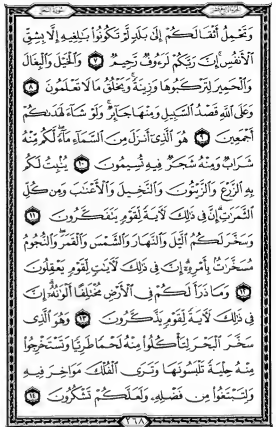 الجزء الرابع عشر
سورة النحل
وَتَحْمِلُ أَثْقَالَكُمْ إِلَىٰ بَلَدٍ لَّمْ تَكُونُوا۟ بَٰلِغِيهِ إِلَّا بِشِقِّ
ٱلْأَنفُسِ إِنَّ رَبَّكُمْ لَرَءُوفٌ رَّحِيمٌ ٧ وَٱلْخَيْلَ وَٱلْبِغَالَ
وَٱلْحَمِيرَ لِتَرْكَبُوهَا وَزِينَةً وَيَخْلُقُ مَا لَا تَعْلَمُونَ ٨
وَعَلَى ٱللَّهِ قَصْدُ ٱلسَّبِيلِ وَمِنْهَا جَآئِرٌ وَلَوْ شَآءَ لَهَدَىٰكُمْ
أَجْمَعِينَ ٩ هُوَ ٱلَّذِىٓ أَنزَلَ مِنَ ٱلسَّمَآءِ مَآءً لَّكُم مِّنْهُ
شَرَابٌ وَمِنْهُ شَجَرٌ فِيهِ تُسِيمُونَ ١٠ يُنۢبِتُ لَكُم
بِهِ ٱلزَّرْعَ وَٱلزَّيْتُونَ وَٱلنَّخِيلَ وَٱلْأَعْنَٰبَ وَمِن كُلِّ
ٱلثَّمَرَٰتِ إِنَّ فِى ذَٰلِكَ لَءَايَةً لِّقَوْمٍ يَتَفَكَّرُونَ ١١
وَسَخَّرَ لَكُمُ ٱلَّيْلَ وَٱلنَّهَارَ وَٱلشَّمْسَ وَٱلْقَمَرَ وَٱلنُّجُومُ
مُسَخَّرَٰتٌۢ بِأَمْرِهِۦٓ إِنَّ فِى ذَٰلِكَ لَءَايَٰتٍ لِّقَوْمٍ يَعْقِلُونَ
١٢ وَمَا ذَرَأَ لَكُمْ فِى ٱلْأَرْضِ مُخْتَلِفًا أَلْوَٰنُهُۥٓ إِنَّ
فِى ذَٰلِكَ لَءَايَةً لِّقَوْمٍ يَذَّكَّرُونَ ١٣ وَهُوَ ٱلَّذِى
سَخَّرَ ٱلْبَحْرَ لِتَأْكُلُوا۟ مِنْهُ لَحْمًا طَرِيًّا وَتَسْتَخْرِجُوا۟
مِنْهُ حِلْيَةً تَلْبَسُونَهَا وَتَرَى ٱلْفُلْكَ مَوَاخِرَ فِيهِ
وَلِتَبْتَغُوا۟ مِن فَضْلِهِۦ وَلَعَلَّكُمْ تَشْكُرُونَ ١٤
٢٦٨